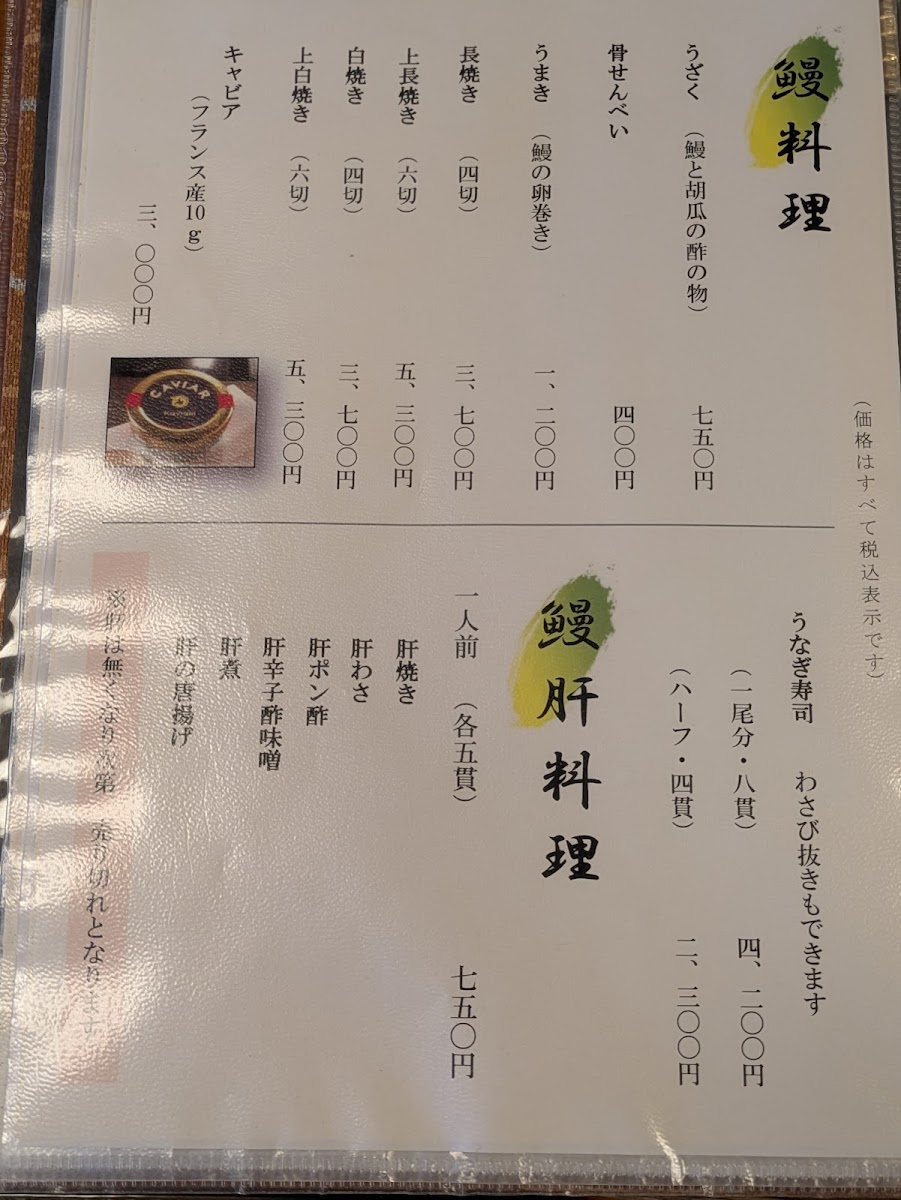 鰻料理
うざく （鰻と胡瓜の酢の物） 七五〇円
骨せんべい 四〇〇円
うまき （鰻の卵巻き） 一、二〇〇円
長焼き （四切） 三、七〇〇円
上長焼き （六切） 五、三〇〇円
白焼き （四切） 三、七〇〇円
上白焼き （六切） 五、三〇〇円
キャビア
（フランス産10ｇ）
三、〇〇〇円
CAVIAR
（価格はすべて税込表示です）
うなぎ寿司 わさび抜きもできます
（一尾分・八貫） 四、二〇〇円
（ハーフ・四貫） 二、三〇〇円
鰻肝料理
一人前 （各五貫） 七五〇円
肝焼き
肝わさ
肝ポン酢
肝辛子酢味噌
肝煮
肝の唐揚げ
※肝は無くなり次第 売り切れとなります